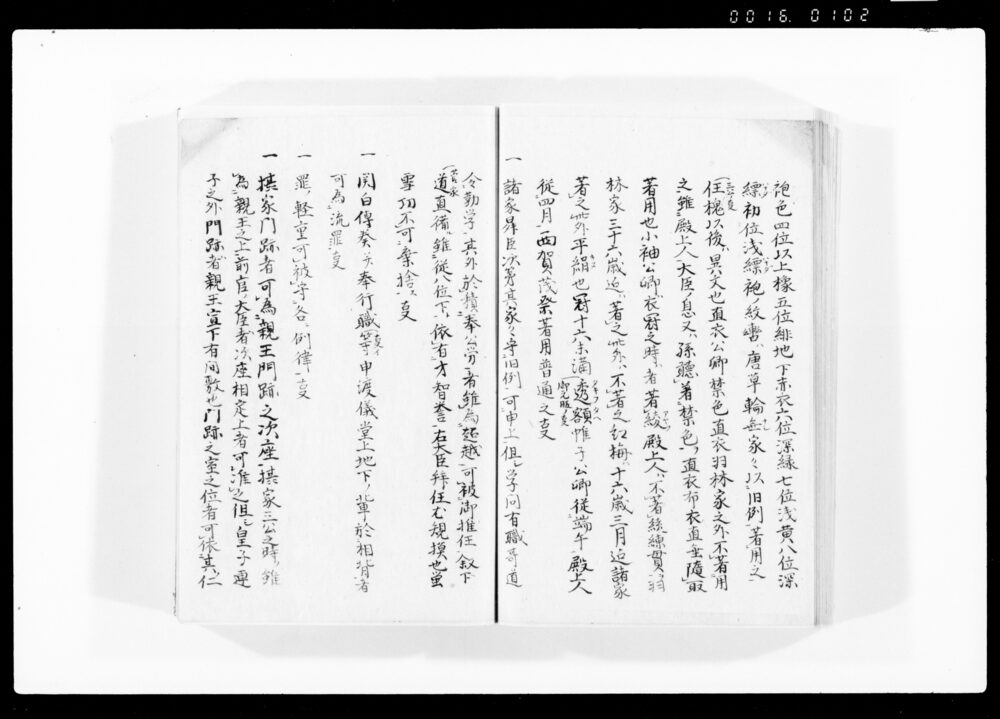 0016. 0102
袍色四位以上橡五位緋地下赤衣六位深緑七位浅黄八位深
縹初位浅縹袍ノ紋轡唐草輪無家々以旧例著用之
任槐以後異文也直衣公卿禁色直衣羽林家之外不著用
之雖殿上人大臣ノ息又孫聴着禁色直衣布衣直垂随所
著用也小袖公卿衣冠之時者著綾殿上人不著綾練貫羽
林家三十六歳迄著之此外不著之紅梅十六歳三月迄諸家
著之此外平絹也冠十六未満透額帷子公卿従端午殿上人
従四月酉賀茂祭著用普通之事
一 諸家昇進次第其家々守旧例可申上但学問有職哥道
令勤学其外於積奉公労者雖為超越可被御推任叙下
道真備雖従八位下依有才智誉右大臣拝任尤規摸也蛍
雪功不可棄捨之事
一 関白傳奏并奉行職事等申渡儀堂上地下ノ輩於相背者
可為流罪事
一 罪ノ軽重可被守名例律事
一 摂家門跡者可為親王門跡之次座摂家三公之時雖
為親王之上前官ノ大臣者次座相定上者可准之但皇子連
子之外門跡者親王宣下有間敷也門跡之室之位者可依其仁